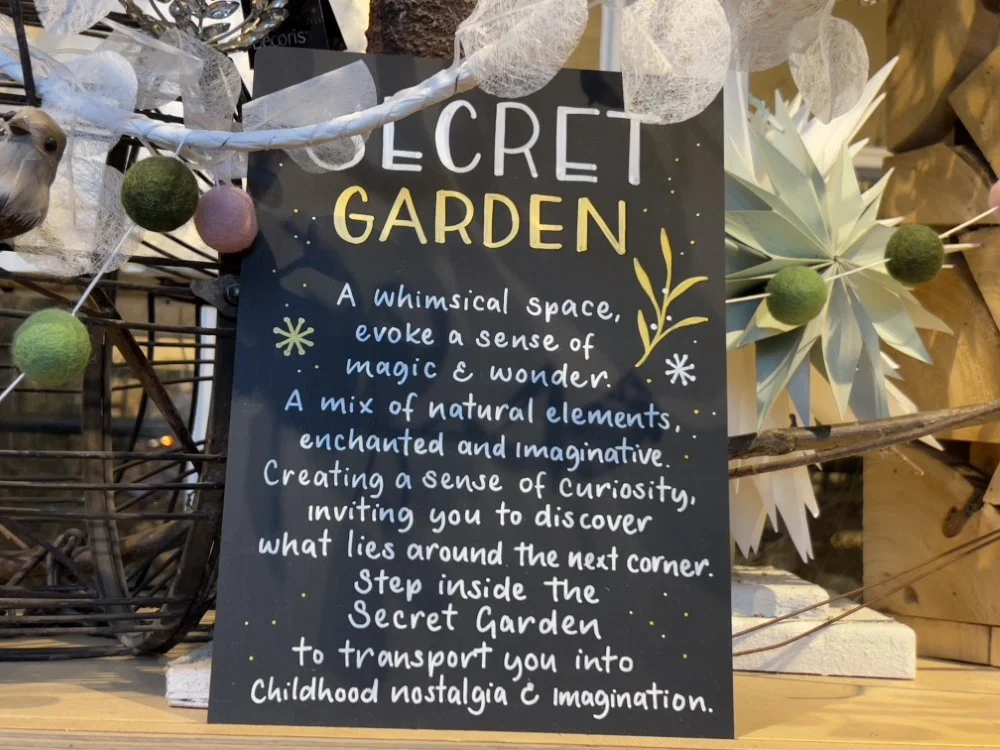 Decoris
SECRET
GARDEN
A whimsical space,
evoke a sense of
magic & wonder.
A mix of natural elements,
enchanted and imaginative.
Creating a sense of curiosity,
inviting you to discover
what lies around the next corner.
Step inside the
Secret Garden
to transport you into
Childhood nostalgia & imagination.